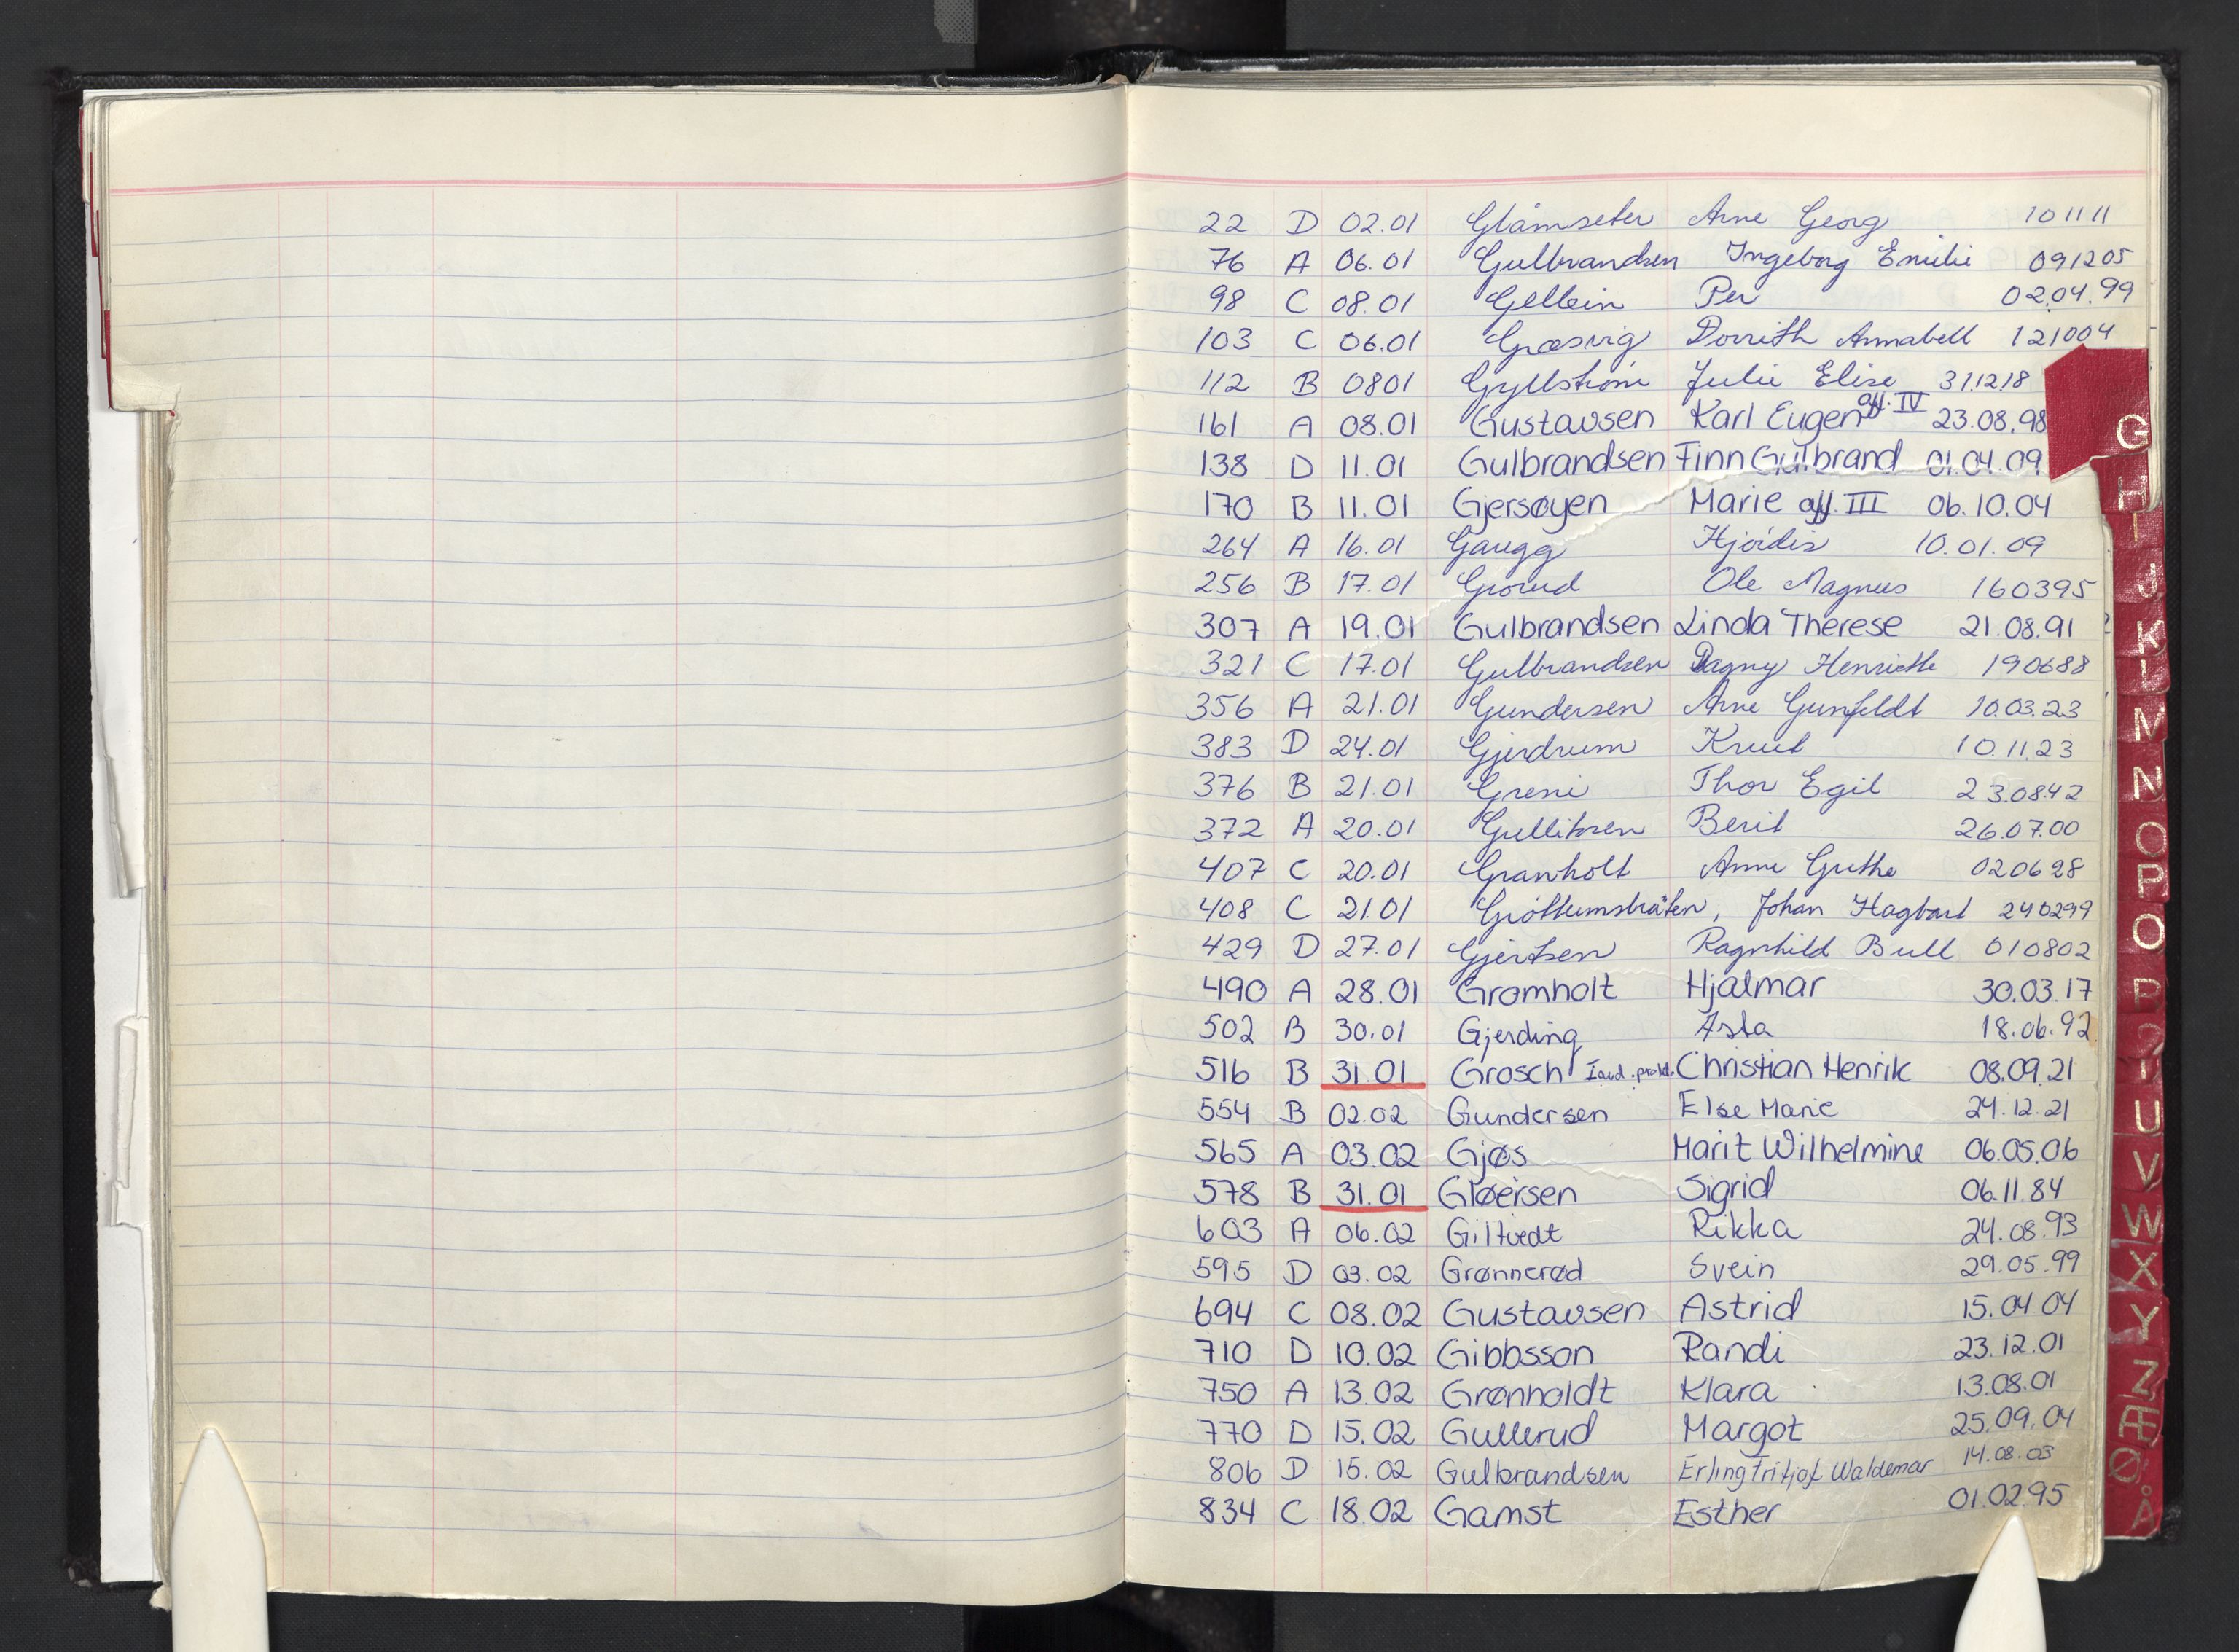 22 D 02.01 Glåmseter Arne Georg 101111
76 A 06.01 Gulbrandsen Ingeborg Emilie 091205
98 C 08.01 Gellein Per 02.04.99
103 C 06.01 Græsvig Dorrith Annabell 121004
112 B 0801 Gyllstrøm Julie Elise 311218
161 A 08.01 Gustavsen Karl Eugen off. IV 23.08.98
138 D 11.01 Gulbrandsen Finn Gulbrand 01.04.09
170 B 11.01 Gjersøyen Marie off. III 06.10.04
264 A 16.01 Gaugg Hjördis 10.01.09
256 B 17.01 Grorud Ole Magnus 160395
307 A 19.01 Gulbrandsen Linda Therese 21.08.91
321 C 17.01 Gulbrandsen Dagny Henriette 190688
356 A 21.01 Gundersen Arne Gunfeldt 10.03.23
383 D 24.01 Gjerdrum Knut 10.11.23
376 B 21.01 Greni Thor Egil 23.0842
372 A 20.01 Gullitsen Berit 26.07.00
407 C 20.01 Granholt Anne Grethe 020628
408 C 21.01 Gröttumsbråten, Johan Hagbart 240299
429 D 27.01 Gjertsen Ragnhild Bull 010802
490 A 28.01 Gromholt Hjalmar 30.03.17
502 B 30.01 Gjerding Asta 18.06.92
516 B 31.01 Grosch Christian Henrik 08.09.21
554 B 02.02 Gundersen Else Marie 24.12.21
565 A 03.02 Gjøs Marit Wilhelmine 06.05.06
578 B 31.01 Gløersen Sigrid 06.11.84
603 A 06.02 Giltvedt Rikka 24.08.93
595 D 03.02 Grønnerød Svein 29.05.99
694 C 08.02 Gustavsen Astrid 15.04.04
710 D 10.02 Gibbsson Randi 23.12.01
750 A 13.02 Grønholdt Klara 13.08.01
770 D 15.02 Gullerud Margot 25.09.04
806 D 15.02 Gulbrandsen Erling Fritjof Waldemar 14.08.03
834 C 18.02 Gamst Esther 01.02.95
G
H
I
J
K
L
M
N
O
P
O
P
U
V
W
X
Y
Z
Æ
Ø
Å